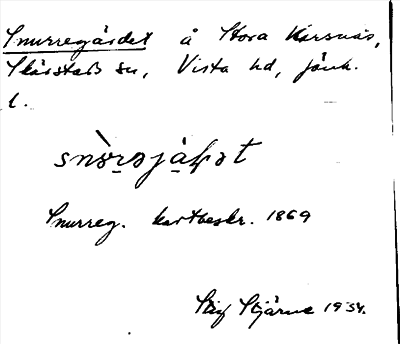 Snurregärdet å Stora Kärsnäs,
Skärstads sn, Vista hd, jönk.
l.
snòr̠əjä̀ḥət
Snurreg. kartbeskr. 1869
Stig Stjärne 1934.